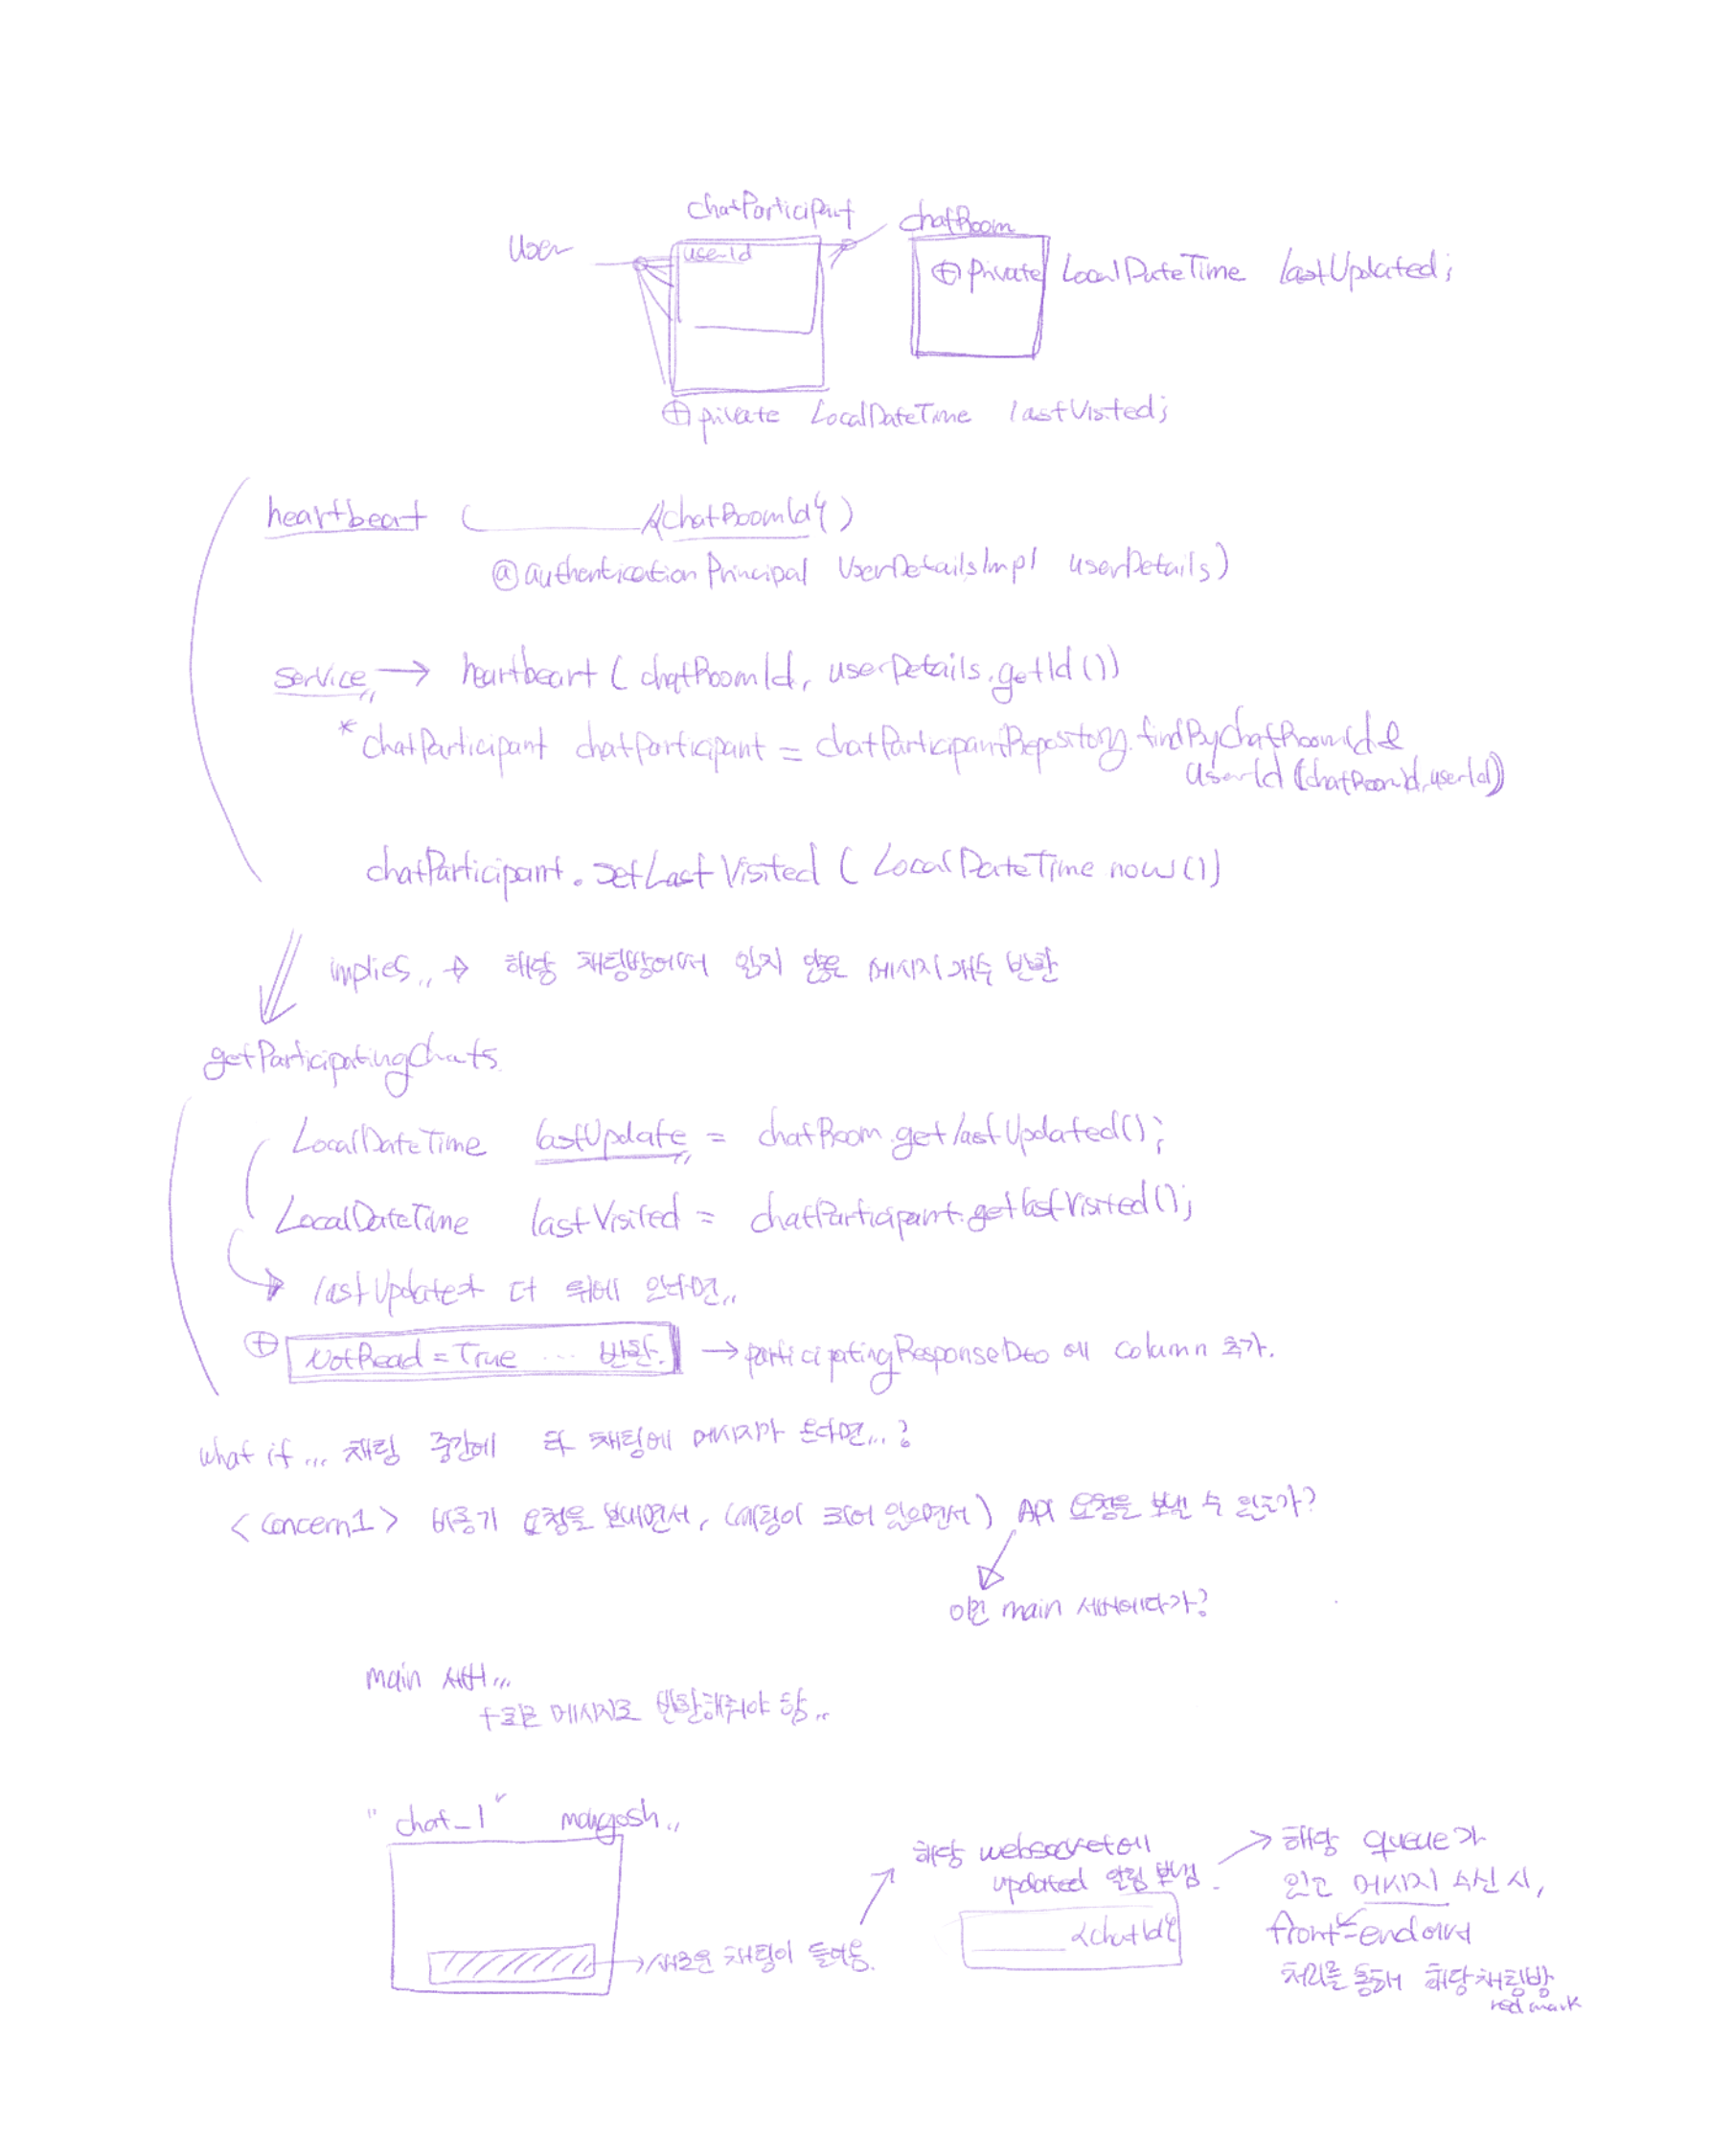 chatParticipant
chatRoom
User
userId
⊕ private LocalDateTime lastUpdated;
⊕ private LocalDateTime lastVisted;
heartbeart ( /{chatRoomId} )
@authentication Principal UserDetailsImpl userDetails)
service,, → heartbeart ( chatRoomId, userDetails.getId())
* chatParticipant chatParticipant = chatParticipantRepository.findByChatRoomId&
UserId (chatRoomId, userId))
chatParticipant.setLastVisited ( LocalDateTime now())
implies,, → 해당 채팅방에서 읽지 않은 메시지 개수 반환
getParticipatingChats
LocalDateTime lastUpdate,, = chatRoom.getlastUpdated();
LocalDateTime lastVisited = chatParticipant.getlastVisited();
→ lastUpdate가 더 뒤에 온다면,,
⊕ NotRead = True ... 반환. → participatingResponseDto 에 column 추가.
what if ... 채팅 중간에 타 채팅에 메시지가 온다면...?
<Concern1> 비동기 요청을 보내면서, (채팅이 되어 있으면서) API 요청을 보낼 수 있는가?
이런 main 서버에다가?
main 서버,,,
메시지로 반환해줘야 함,,
"chat_1"
→ 새로운 채팅이 들어옴.
해당 websocket에
updated 알림 보냄.
{chatId}
→ 해당 queue가
있고 메시지 수신 시,
front-end에서
처리를 통해 해당 채팅방
red mark